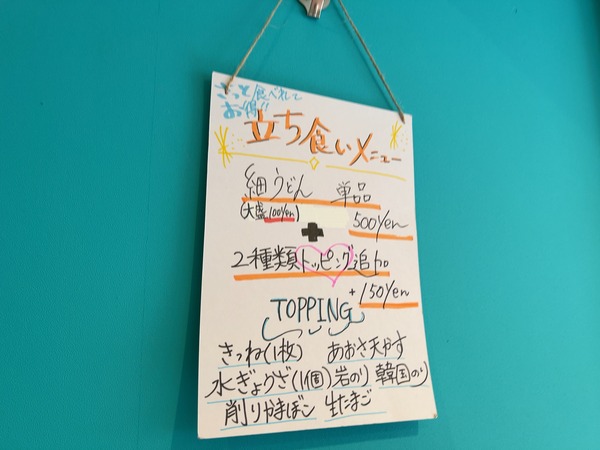 さっと食べれて
お得!!
立ち食いメニュー
細うどん 単品
(大盛100yen) 500yen
+
2種類トッピング追加
+150yen
TOPPING
きつね(1枚) あおさ天かす
水ぎょうざ(1個) 岩のり 韓国のり
削りかまぼこ 生たまご